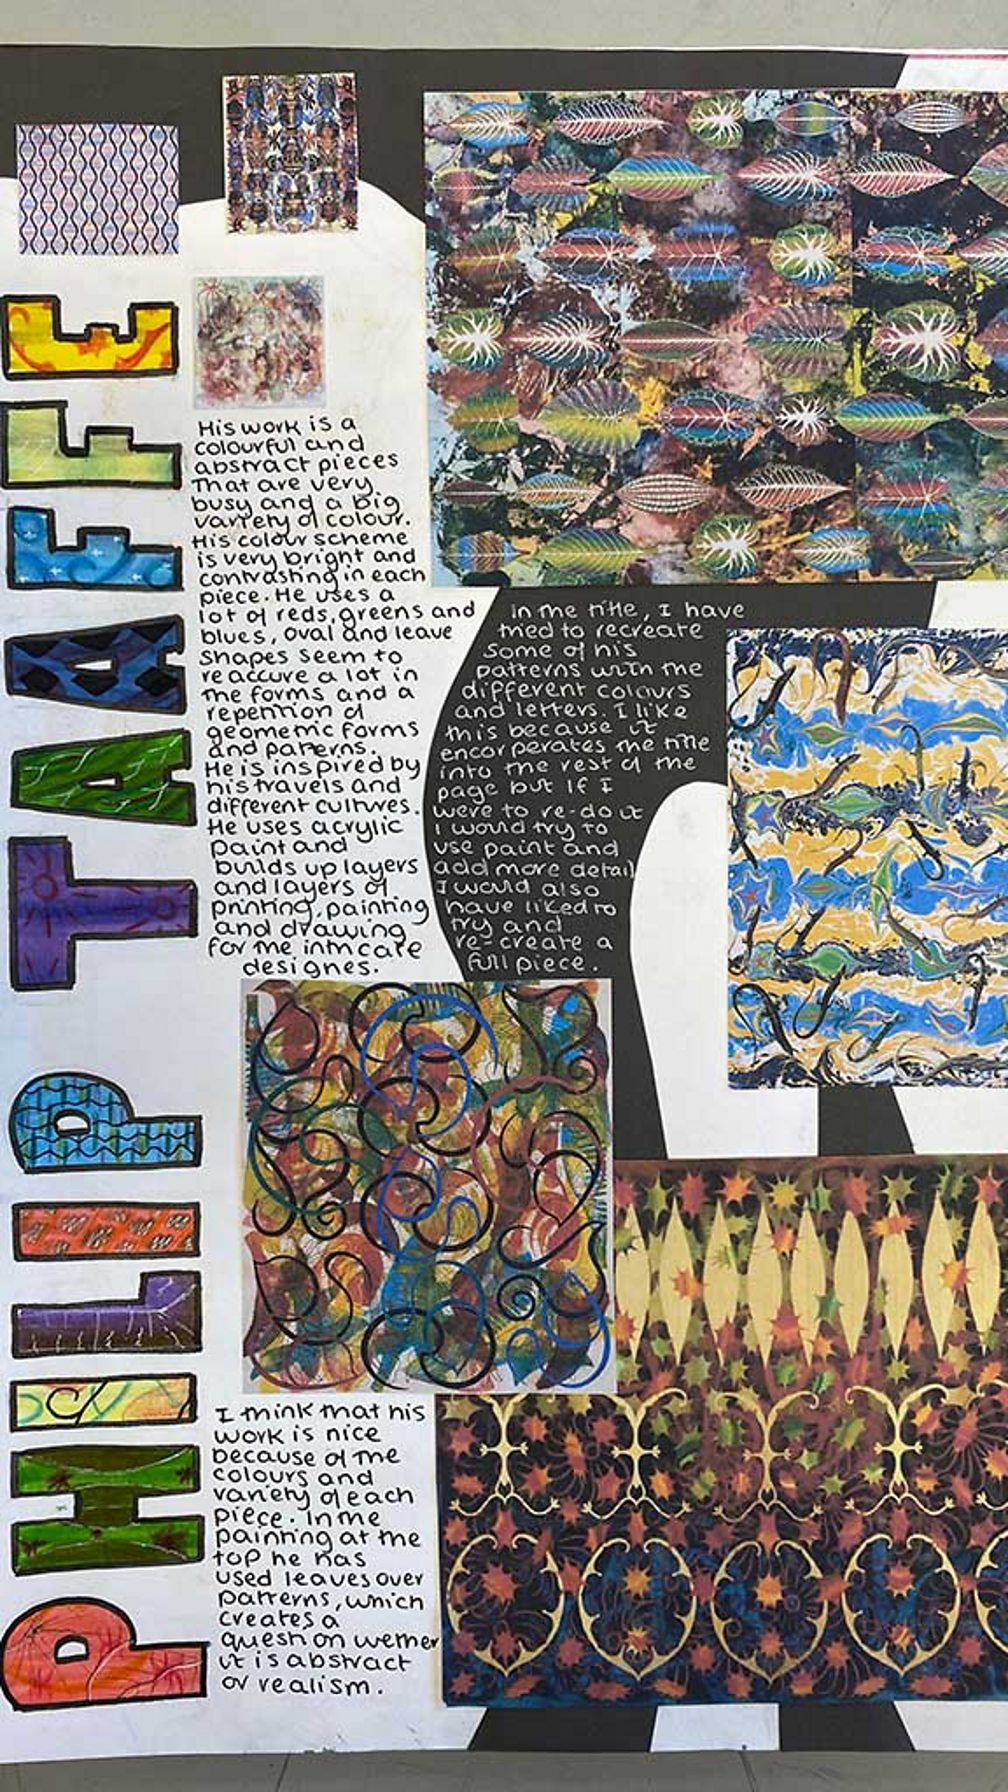 PHILLIP TAAFFE
His work is a
colourful and
abstract pieces
That are very
busy and a big
variety of colour.
His colour scheme
is very bright and
contrasting in each
piece. He uses a
lot of reds, greens and
blues, oval and leave
shapes seem to
reaccure a lot in
the forms and a
repention of
geometric forms
and patterns.
He is inspired by
his travels and
different cultures.
He uses acrylic
paint and
builds up layers
and layers of
printing, painting
and drawing
for the intricate
designes.
In the title, I have
tried to recreate
some of his
patterns with the
different colours
and letters. I like
this because it
encorperates the title
into the rest of the
page but If I
were to re-do it
I would try to
use paint and
add more detail
I would also
have liked to
try and
re-create a
full piece.
I think that his
work is nice
because of the
colours and
variety of each
piece. In the
painting at the
top he has
used leaves over
patterns, which
creates a
question wether
it is abstract
or realism.